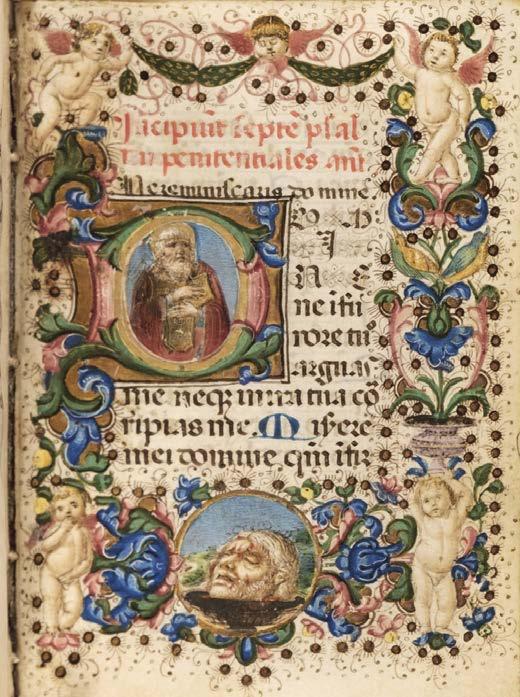 Incipiūt septē psal
mi penitentiales añt
Ne reminiscaris domine
DO M
I
N E
ne ī fu
rore tu
arguas
me neq; in ira tua cō
ripias me. Misere
mei domine qm̄ īfir